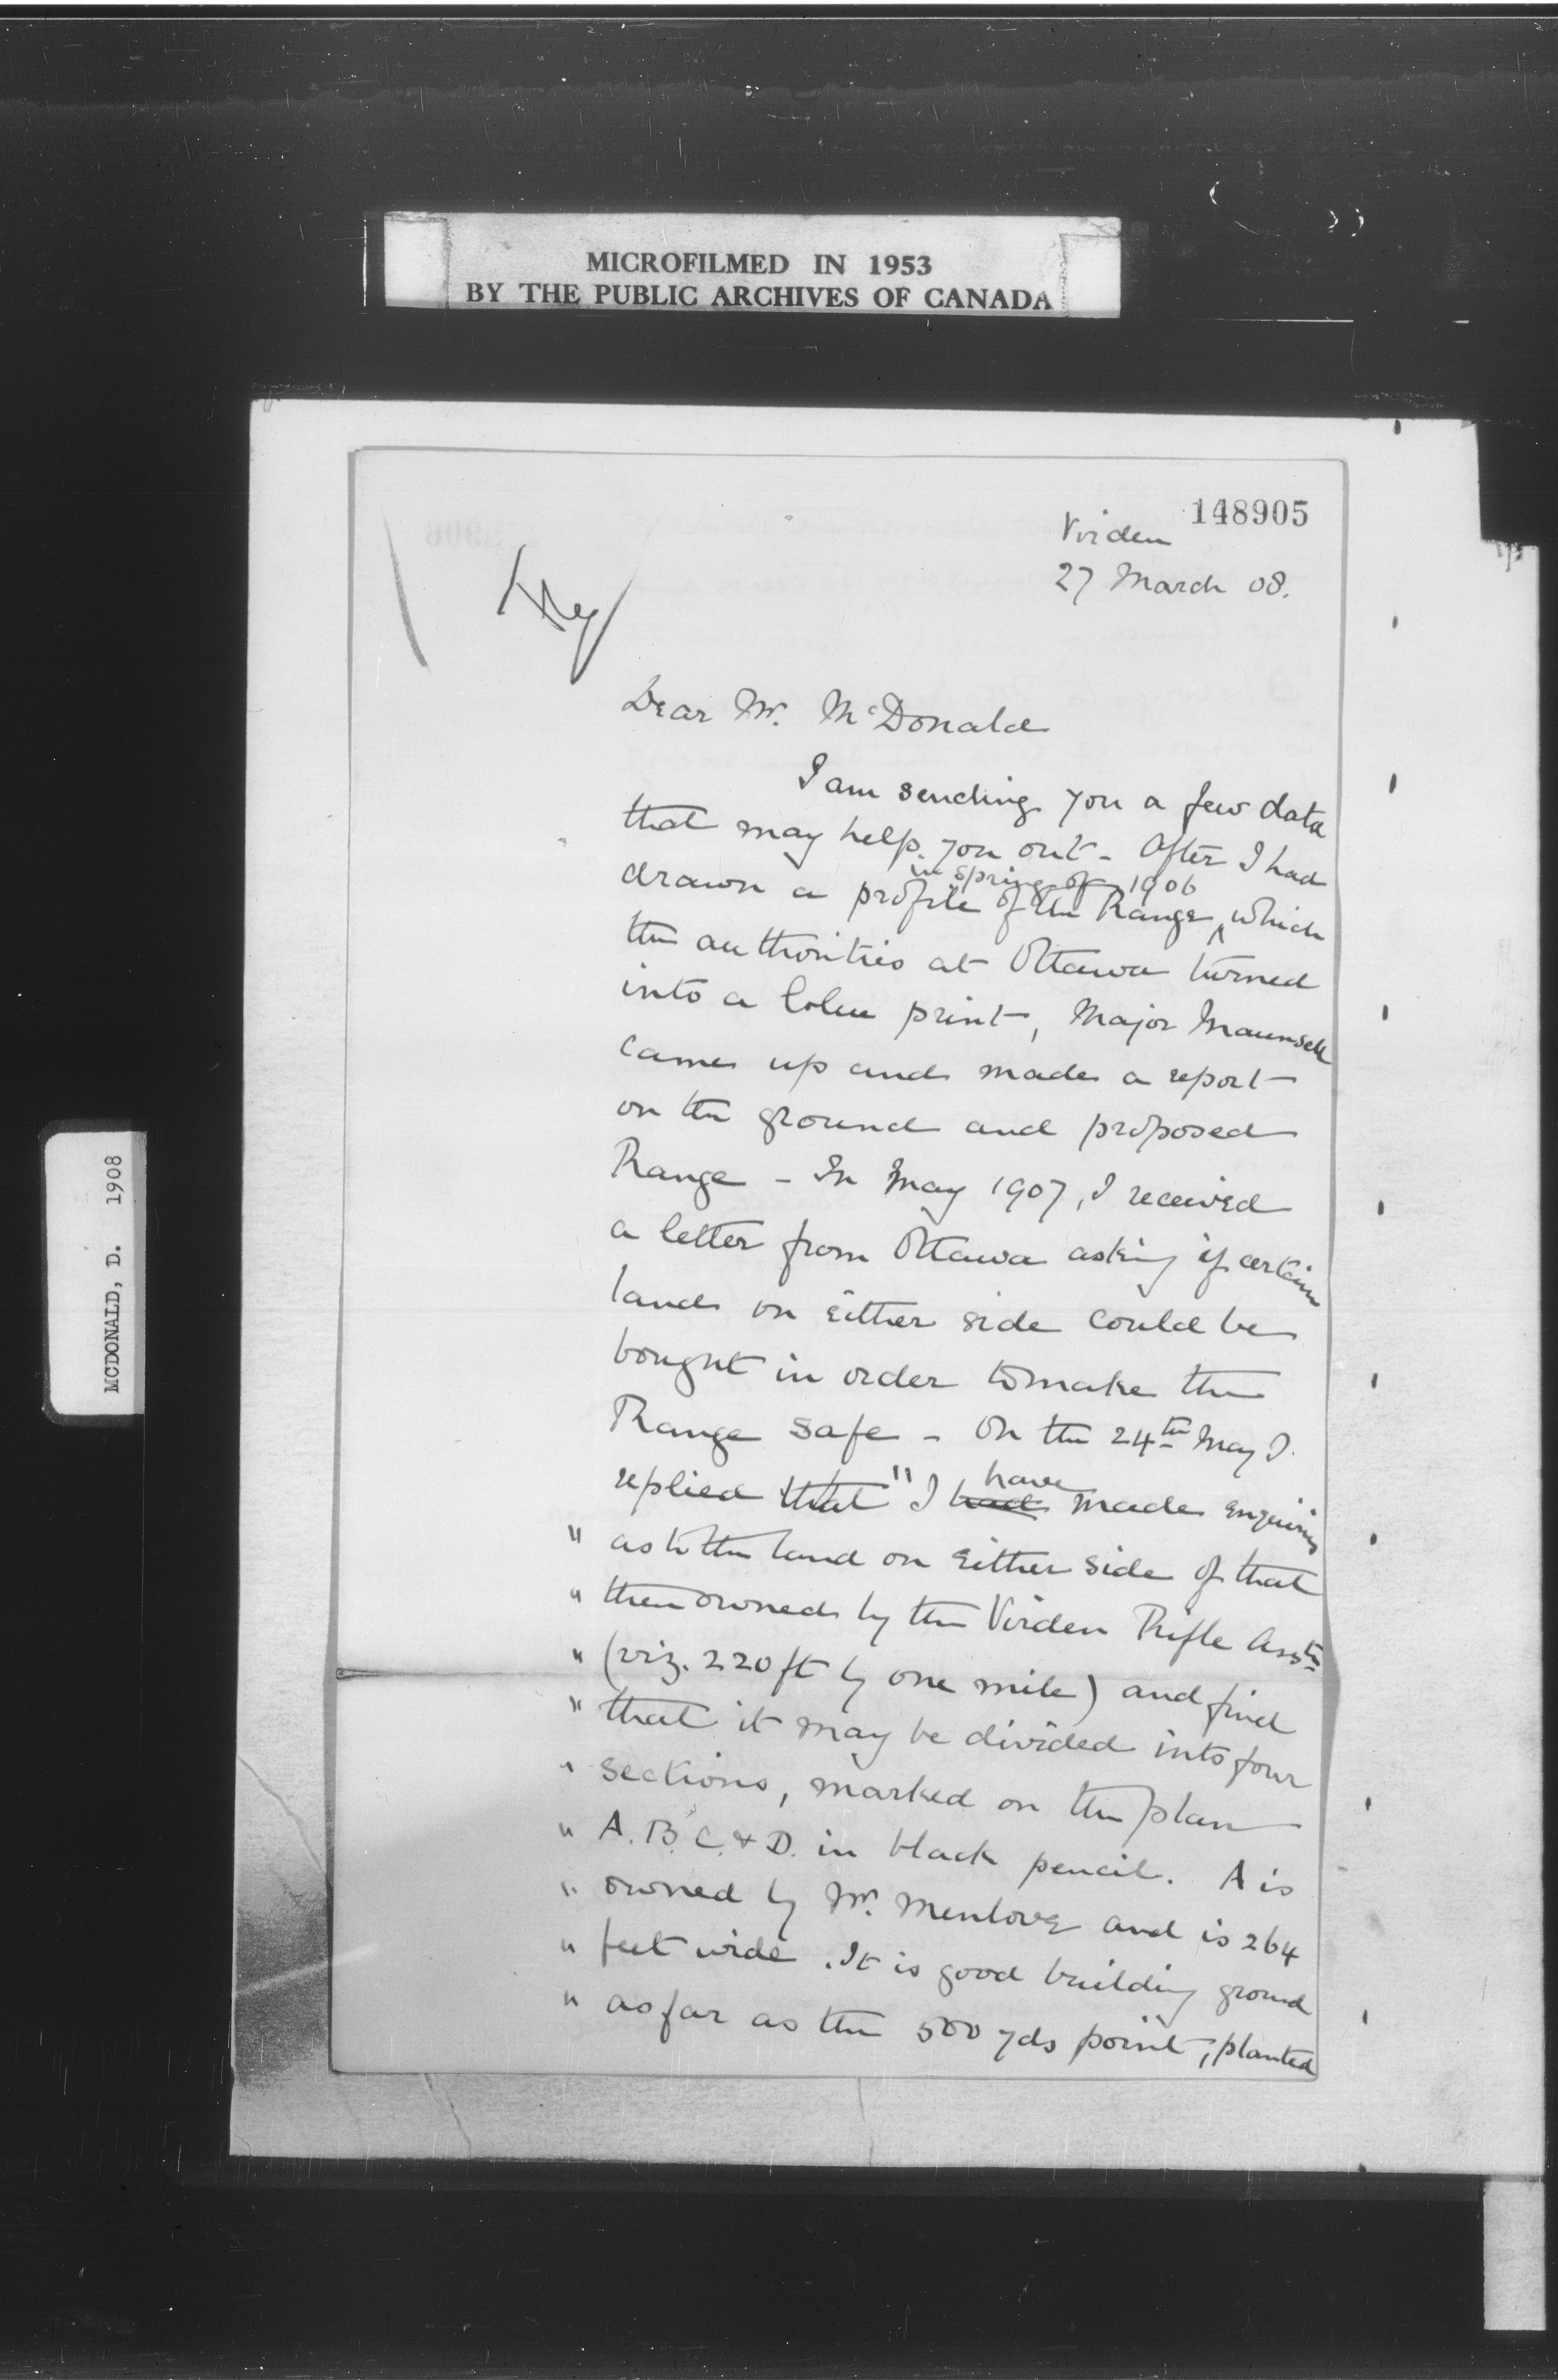 MICROFILMED IN 1953
BY THE PUBLIC ARCHIVES OF CANADA
MCDONALD, D. 1908
148905
Virden
27 March 08.
Dear Mr. McDonald
I am sending you a few data
that may help you out - After I had
in spring of 1906
drawn a profile of the Range, which
the authorities at Ottawa turned
into a blue print, Major Maunsell
came up and made a report
on the ground and proposed
Range - In May 1907, I received
a letter from Ottawa asking if certain
lands on either side could be
bought in order to make the
Range safe - On the 24th May I
have
replied that "I had made enquiries
" as to the land on either side of that
" then owned by the Virden Rifle Asstn
" (viz. 220 ft by one mile) and find
" that it may be divided into four
" sections, marked on the plan
" A. B. C. & D. in black pencil. A is
" owned by Mr. Menlove and is 264
" feet wide. It is good building ground
" as far as the 500 yds point, planted